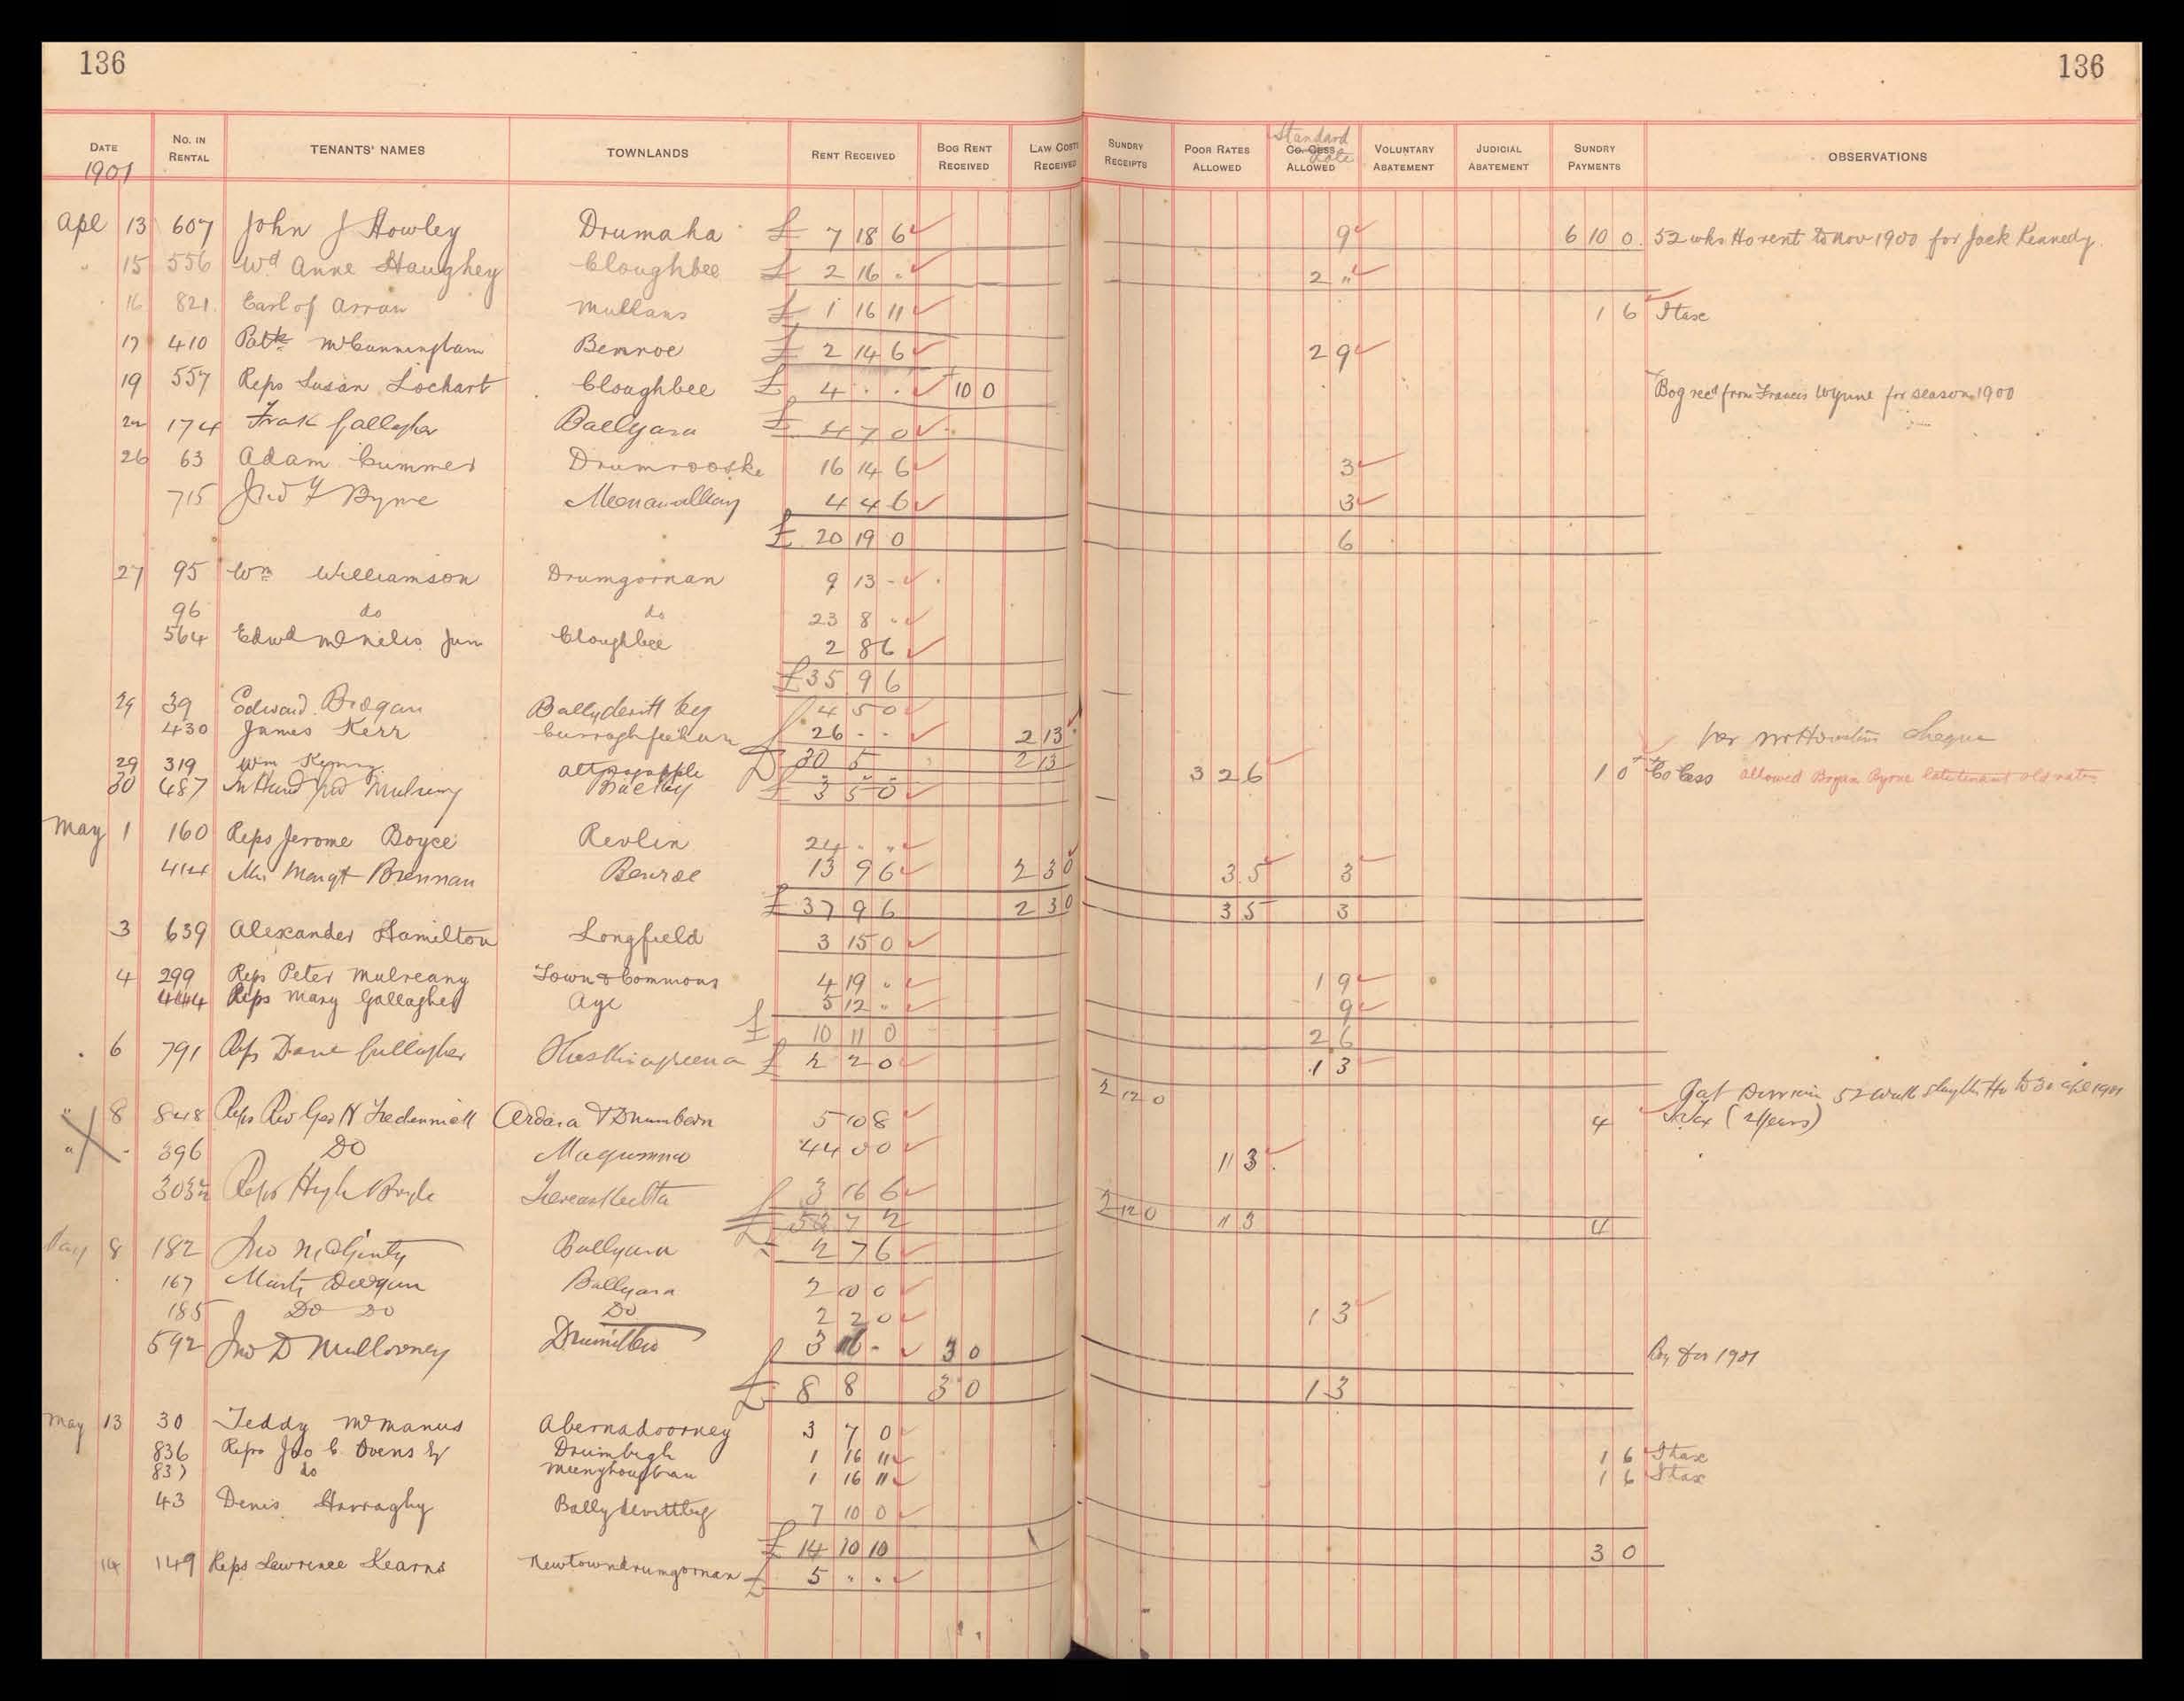 136 136
DATE No. IN RENTAL TENANTS' NAMES TOWNLANDS RENT RECEIVED BOG RENT RECEIVED LAW COSTS RECEIVED SUNDRY RECEIPTS POOR RATES ALLOWED Standard Rate Co. Cess ALLOWED VOLUNTARY ABATEMENT JUDICIAL ABATEMENT SUNDRY PAYMENTS OBSERVATIONS
1901
Apl 13 607 John J Howley Drumaha £ 7 18 6 9 6 10 0 52 wks Ho rent to Nov 1900 for Jack Kennedy.
" 15 556 Wd Anne Haughey Cloughbee £ 2 16 " 2 "
16 821 Earl of Arran Mullans £ 1 16 11 1 6 I tax
17 410 Patk McCunningham Benroe £ 2 14 6 2 9
19 557 Reps Susan Lockart Cloughbee £ 4 . . 10 0 Bog recd from Francis Wynne for season 1900
22 174 Frak Gallagher Ballyara £ 4 7 0
26 63 Adam Cummer Drumrooske 16 14 6 3
715 Jno Y Byrne Meenawalley 4 4 6 3
£ 20 19 0 6
27 95 Wm Williamson Drumgornan 9 13 -
96 do do 23 8 "
564 Edwd McNelis Jun Cloughbee 2 8 6
£ 35 9 6
29 39 Edward Brogan Ballydevitt beg 4 5 0
430 James Kerr 26 - - 2 13 per Mr cheque
£ 30 5 2 13
29 319 Wm 3 2 6 1 0 Co Cess allowed Bryan Byrne late tenant old rates
30 487 Mulreany £ 3 5 0
May 1 160 Reps Jerome Boyce Revlin 24 " "
414 Mrs Margt Brennan Benroe 13 9 6 2 3 0 3 5 3
£ 37 9 6 2 3 0 3 5 3
3 639 Alexander Hamilton Longfield 3 15 0
4 299 Reps Peter Mulreany Town & Commons 4 19 " 1 9
444 Reps Mary Gallagher Aye 5 12 " 9
£ 10 11 0 2 6
6 791 Reps Dane Gallagher £ 2 2 0 1 3
2 12 0 52 week to 30 Apl 1901
" 8 848 Reps Rev Geo N Tredennick Ardara & Drumbarn 5 10 8 4 I Tax (2 years)
" 396 Do 44 0 0 11 3
303½ Reps Hugh Boyle 3 16 6
£ 53 7 2 2 12 0 11 3 4
May 8 182 Jno McGinty Ballyara £ 2 7 6
167 Ballyara 2 10 0
185 Do Do Do 2 2 0 1 3
592 Jno D Mullowney 3 16 - 3 0 Bog for 1901
£ 8 8 3 0 1 3
May 13 30 Teddy McManus Abernadoorney 3 7 0
836 Reps Jno C. Ovens Drumbigh 1 16 11 1 6 I tax
837 do 1 16 11 1 6 I tax
43 Denis Harraghy Ballydevittbeg 7 10 0
£ 14 10 10 3 0
14 149 Reps Lawrence Kearns Newtowndrumgornan £ 5 " "